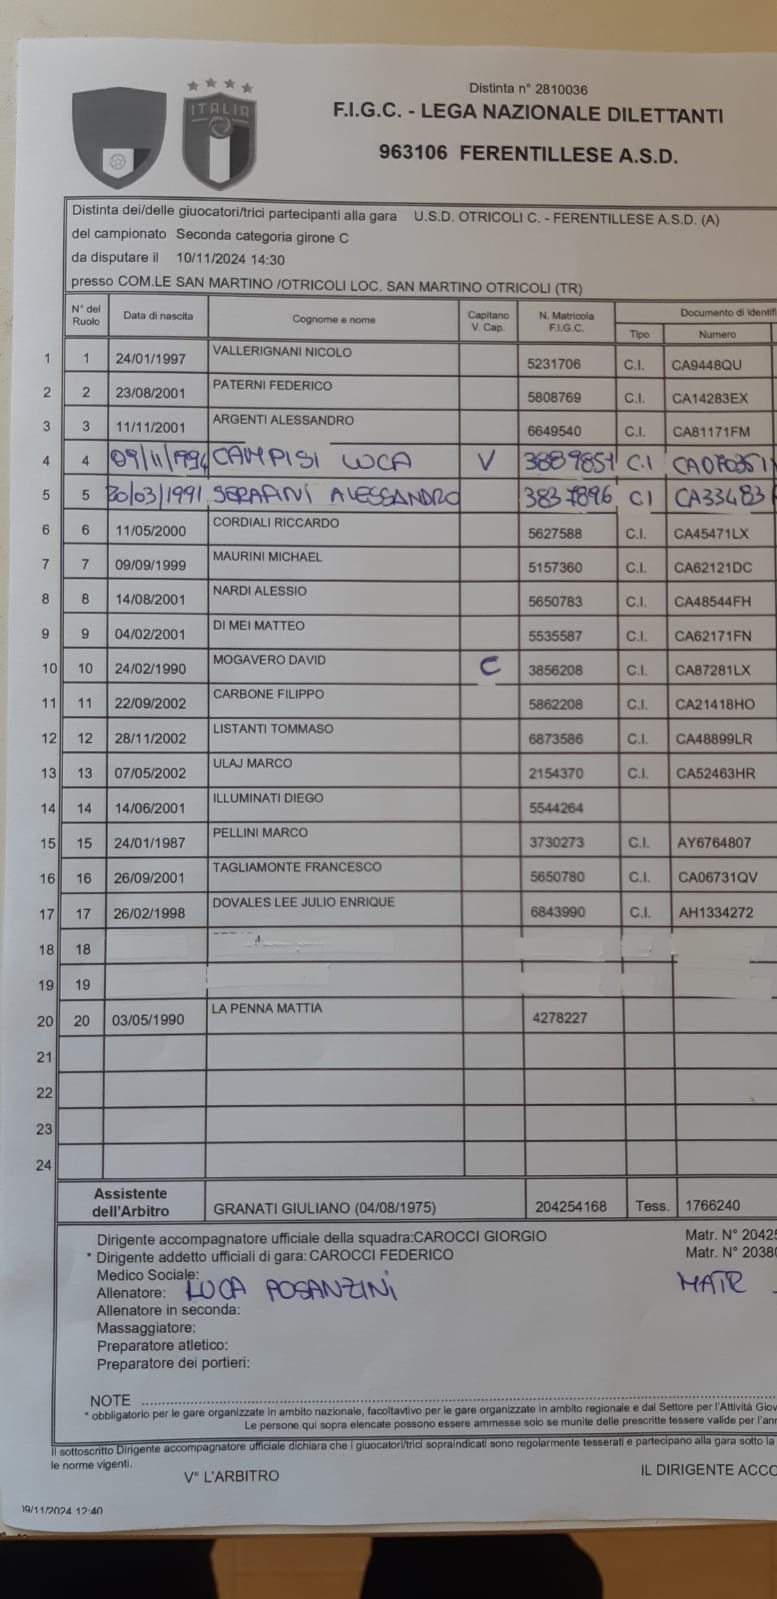 ITALIA
Distinta n° 2810036
F.I.G.C. - LEGA NAZIONALE DILETTANTI
963106 FERENTILLESE A.S.D.
Distinta dei/delle giuocatori/trici partecipanti alla gara U.S.D. OTRICOLI C. - FERENTILLESE A.S.D. (A)
del campionato Seconda categoria girone C
da disputare il 10/11/2024 14:30
presso COM.LE SAN MARTINO /OTRICOLI LOC. SAN MARTINO OTRICOLI (TR)
N° del Ruolo Data di nascita Cognome e nome Capitano V. Cap. N. Matricola F.I.G.C. Documento di identifi
Tipo Numero
1 1 24/01/1997 VALLERIGNANI NICOLO 5231706 C.I. CA9448QU
2 2 23/08/2001 PATERNI FEDERICO 5808769 C.I. CA14283EX
3 3 11/11/2001 ARGENTI ALESSANDRO 6649540 C.I. CA81171FM
4 4 09/11/1994 CAMPISI LUCA V 3889851 C.I
5 5 20/03/1991 SERAFINI ALESSANDRO 3837896 CI CA33483
6 6 11/05/2000 CORDIALI RICCARDO 5627588 C.I. CA45471LX
7 7 09/09/1999 MAURINI MICHAEL 5157360 C.I. CA62121DC
8 8 14/08/2001 NARDI ALESSIO 5650783 C.I. CA48544FH
9 9 04/02/2001 DI MEI MATTEO 5535587 C.I. CA62171FN
10 10 24/02/1990 MOGAVERO DAVID C 3856208 C.I. CA87281LX
11 11 22/09/2002 CARBONE FILIPPO 5862208 C.I. CA21418HO
12 12 28/11/2002 LISTANTI TOMMASO 6873586 C.I. CA48899LR
13 13 07/05/2002 ULAJ MARCO 2154370 C.I. CA52463HR
14 14 14/06/2001 ILLUMINATI DIEGO 5544264
15 15 24/01/1987 PELLINI MARCO 3730273 C.I. AY6764807
16 16 26/09/2001 TAGLIAMONTE FRANCESCO 5650780 C.I. CA06731QV
17 17 26/02/1998 DOVALES LEE JULIO ENRIQUE 6843990 C.I. AH1334272
18 18
19 19
20 20 03/05/1990 LA PENNA MATTIA 4278227
21
22
23
24
Assistente dell'Arbitro GRANATI GIULIANO (04/08/1975) 204254168 Tess. 1766240
Dirigente accompagnatore ufficiale della squadra:CAROCCI GIORGIO Matr. N° 2042
* Dirigente addetto ufficiali di gara: CAROCCI FEDERICO Matr. N° 2038
Medico Sociale:
Allenatore: LUCA POSANZINI MATR
Allenatore in seconda:
Massaggiatore:
Preparatore atletico:
Preparatore dei portieri:
NOTE
* obbligatorio per le gare organizzate in ambito nazionale, facoltavtivo per le gare organizzate in ambito regionale e dal Settore per l'Attività Giov
Le persone qui sopra elencate possono essere ammesse solo se munite delle prescritte tessere valide per l'ann
Il sottoscritto Dirigente accompagnatore ufficiale dichiara che i giuocatori/trici sopraindicati sono regolarmente tesserati e partecipano alla gara sotto la
le norme vigenti.
V° L'ARBITRO IL DIRIGENTE ACCO
09/11/2024 12:40